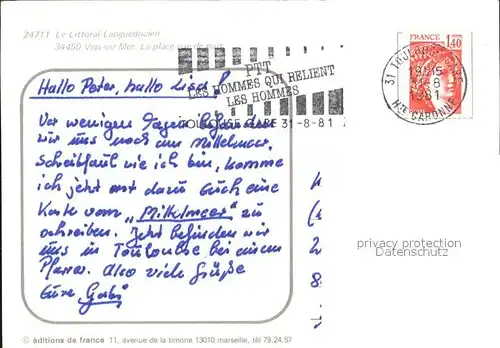 24711 Le Littoral Languedocien
34450 Vias-sur-Mer. La place vue de nuit
FRANCE
1,40
31 TOULOUSE GARE
19H15
31-8
1981
HTE GARONNE
PTT
LES HOMMES QUI RELIENT
LES HOMMES
TOULOUSE GARE 31-8-81
Hallo Peter, hallo Lisa!
Vor wenigen Tagen befanden
wir uns noch am Mittelmeer.
Schreibfaul wie ich bin, komme
ich jetzt erst dazu Euch eine
Karte vom „Mittelmeer" zu
schreiben. Jetzt befinden wir
uns in Toulouse bei einem
Pfarrer. Also viele Grüße
Eure „Gabi"
privacy protection
Datenschutz
© éditions de france 11, avenue de la timone 13010 marseille, tél 79.24.57